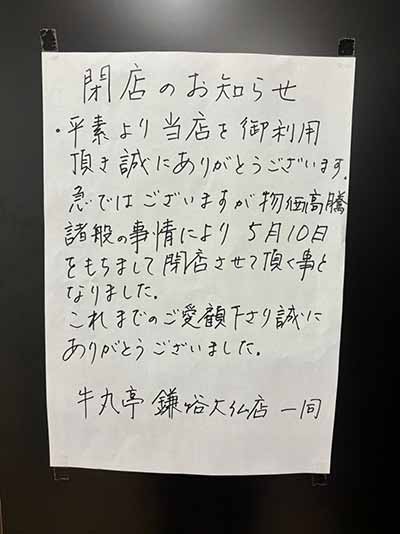 閉店のお知らせ
・平素より当店を御利用
頂き誠にありがとうございます.
急ではございますが物価高騰
諸般の事情により 5月10日
をもちまして閉店させて頂く事と
なりました.
これまでのご愛顧下さり誠に
ありがとうございました.
牛丸亭 鎌谷大仏店 一同